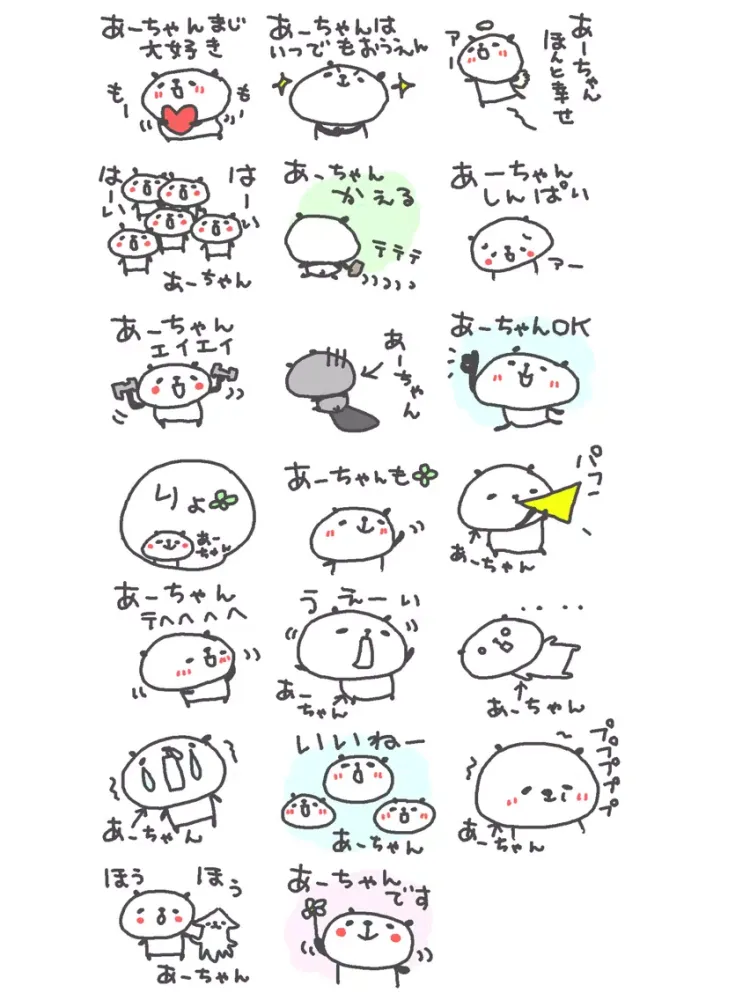 あーちゃんまじ
大好き
もー
も
あーちゃんは
いつでもおうえん
あーちゃん
ほんと幸せ
アー
はーい
はーい
あーちゃん
あーちゃん
かえる
テテテ
あーちゃん
しんぱい
アー
あーちゃん
エイエイ
あーちゃん
あーちゃんOK
りょ
あー
ちゃん
あーちゃんも
パフ
あーちゃん
あーちゃん
テヘヘヘヘ
うえーい
あー
ちゃん
・・・・
あーちゃん
あーちゃん
いいねー
あーちゃん
プププププ
あーちゃん
ほう
ほう
あーちゃん
あーちゃん
です